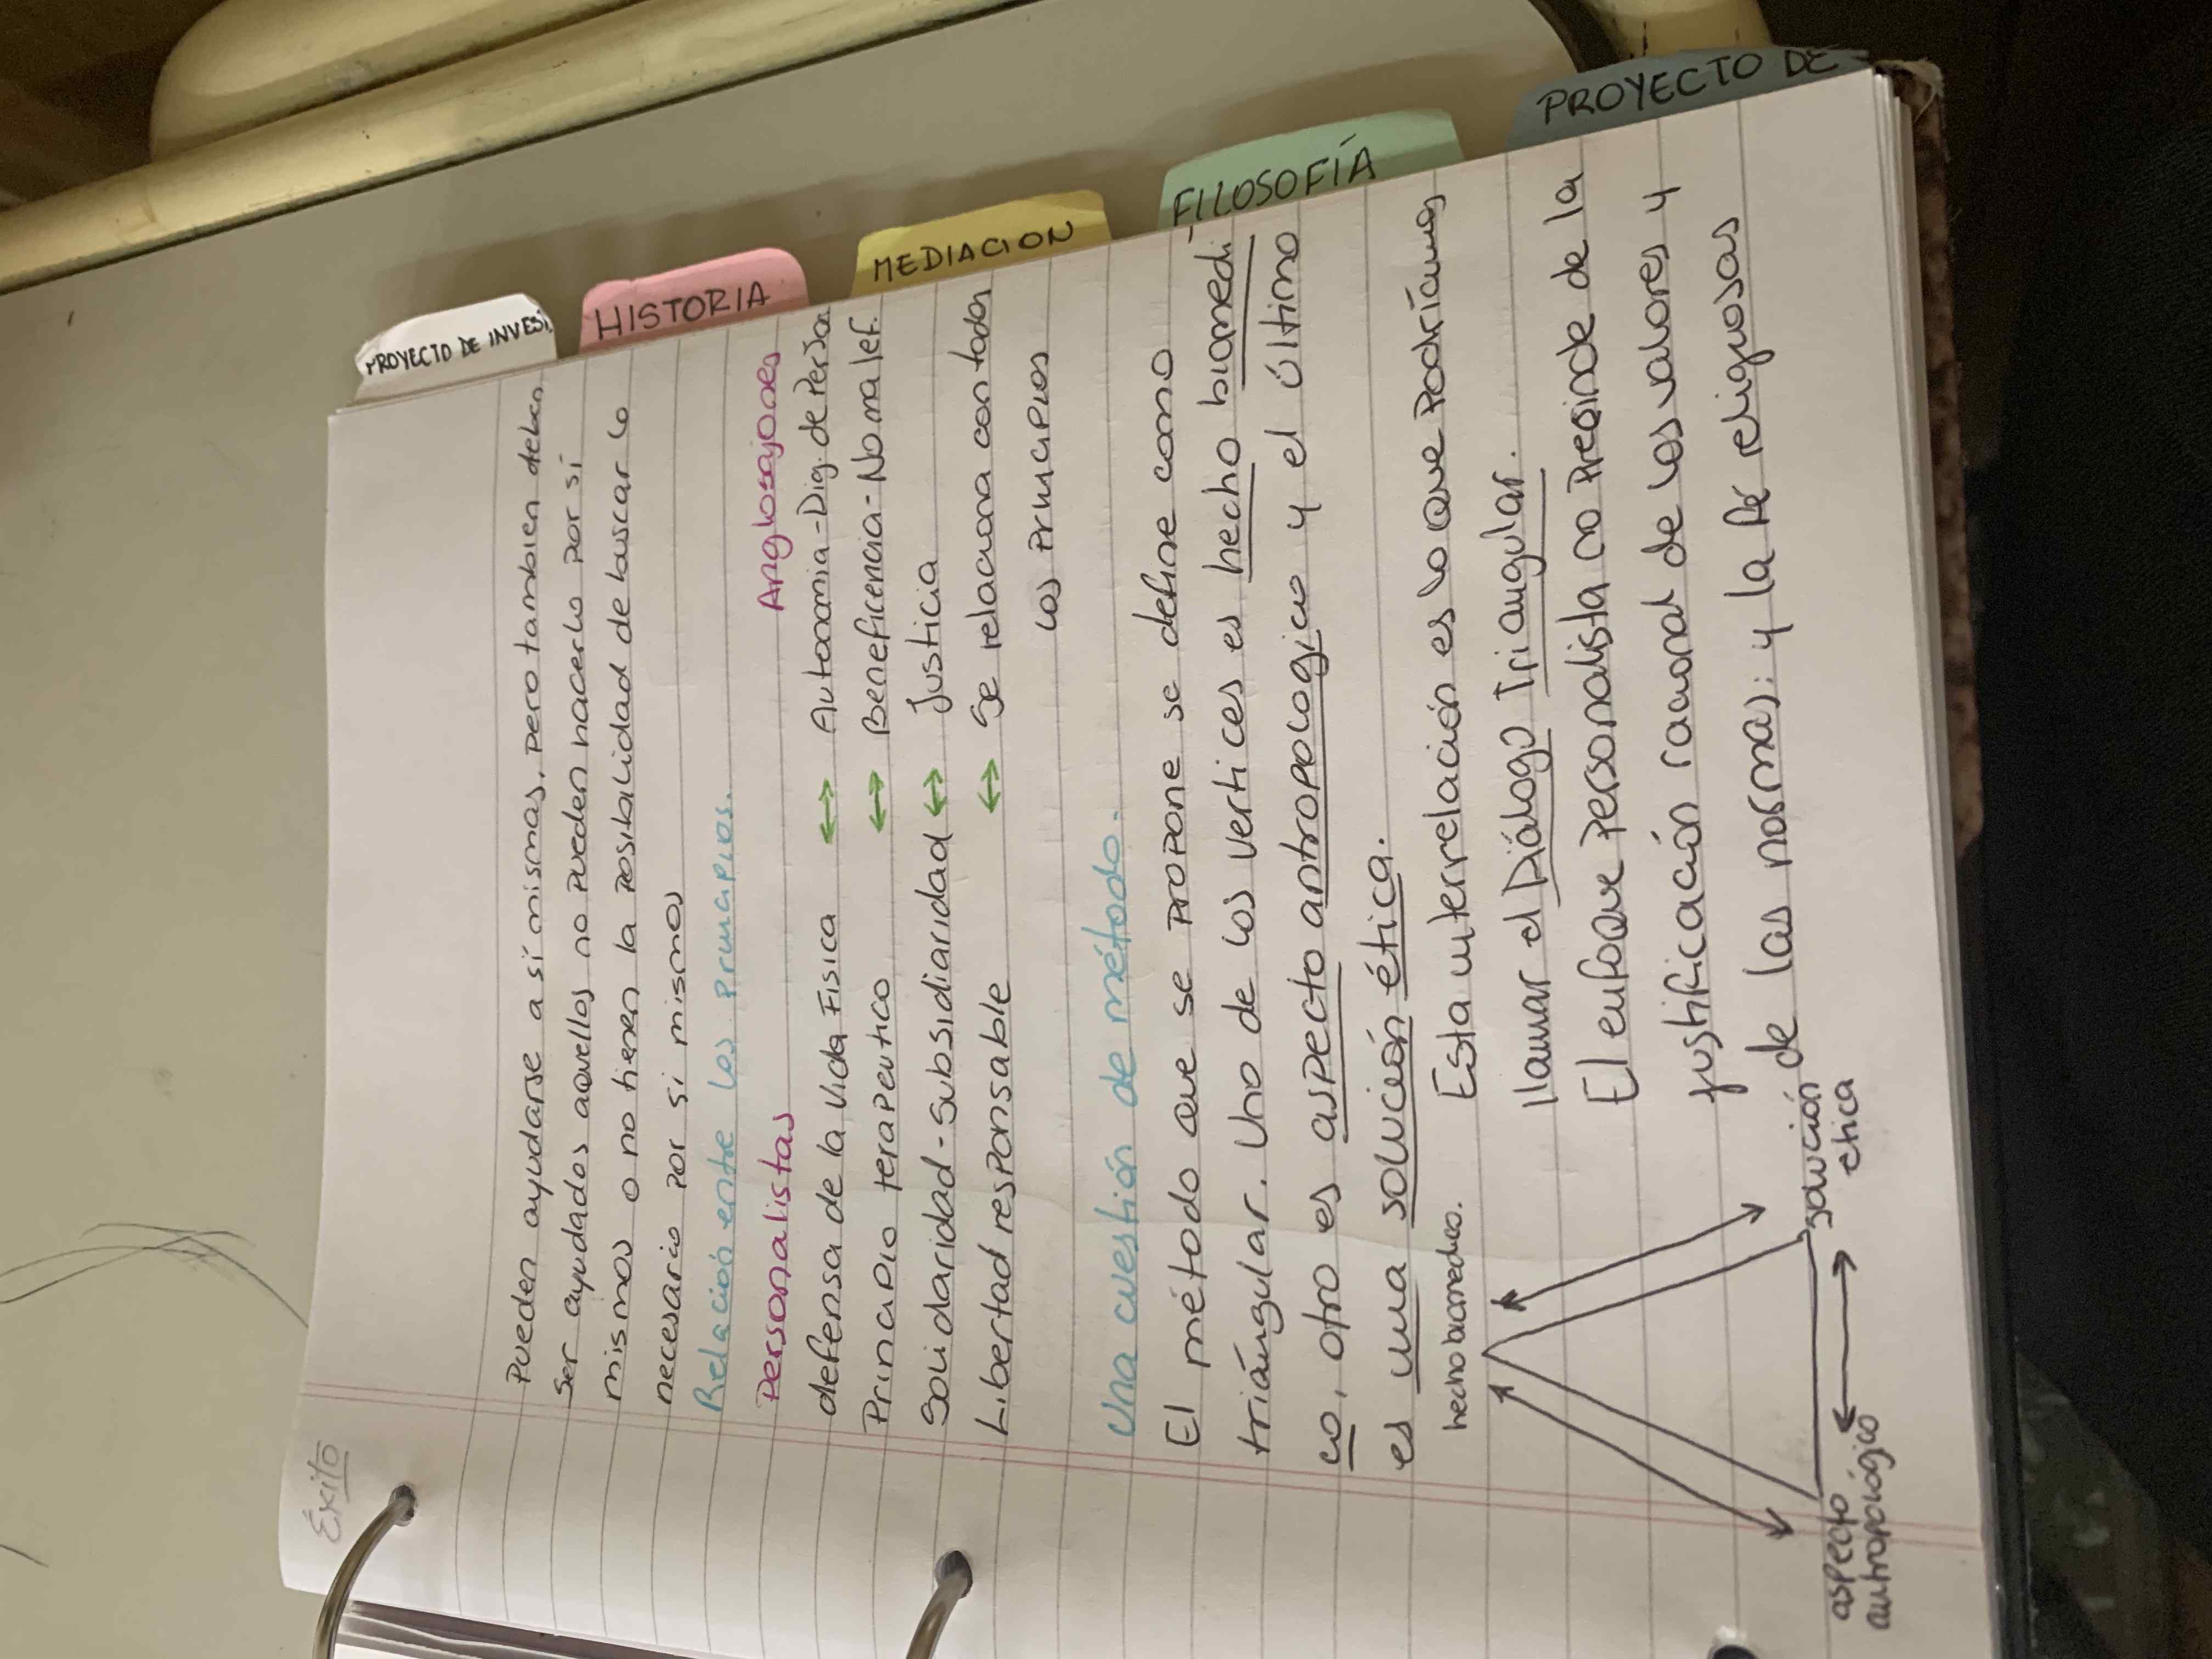 Éxito
PROYECTO DE INVES.
HISTORIA
MEDIACION
FILOSOFÍA
PROYECTO DE
Pueden ayudarse a sí mismas, pero tambien deben
ser ayudados aquellos no pueden hacerlo por sí
mismos o no tienen la posibilidad de buscar lo
necesario por si mismos
Relación entre los principios.
Personalistas Anglosajones
defensa de la vida Fisica ↔ Autonomia-Dig. de Persona
Principio terapeutico ↔ Beneficencia-No malef.
Solidaridad-Subsidiaridad ↔ Justicia
Libertad responsable ↔ Se relaciona con todos
los principios
Una cuestión de método.
El método que se propone se define como
triángular. Uno de los vertices es hecho biomedi-
co, otro es aspecto antropologico y el último
es una solución ética.
hecho biomedico. Esta interrelación es lo que Podríamos
llamar el Diálogo Triangular.
El enfoque personalista no Presinde de la
justificación racional de los valores y
de las normas; y la fe religiosas
solución
etica
aspecto
antropológico